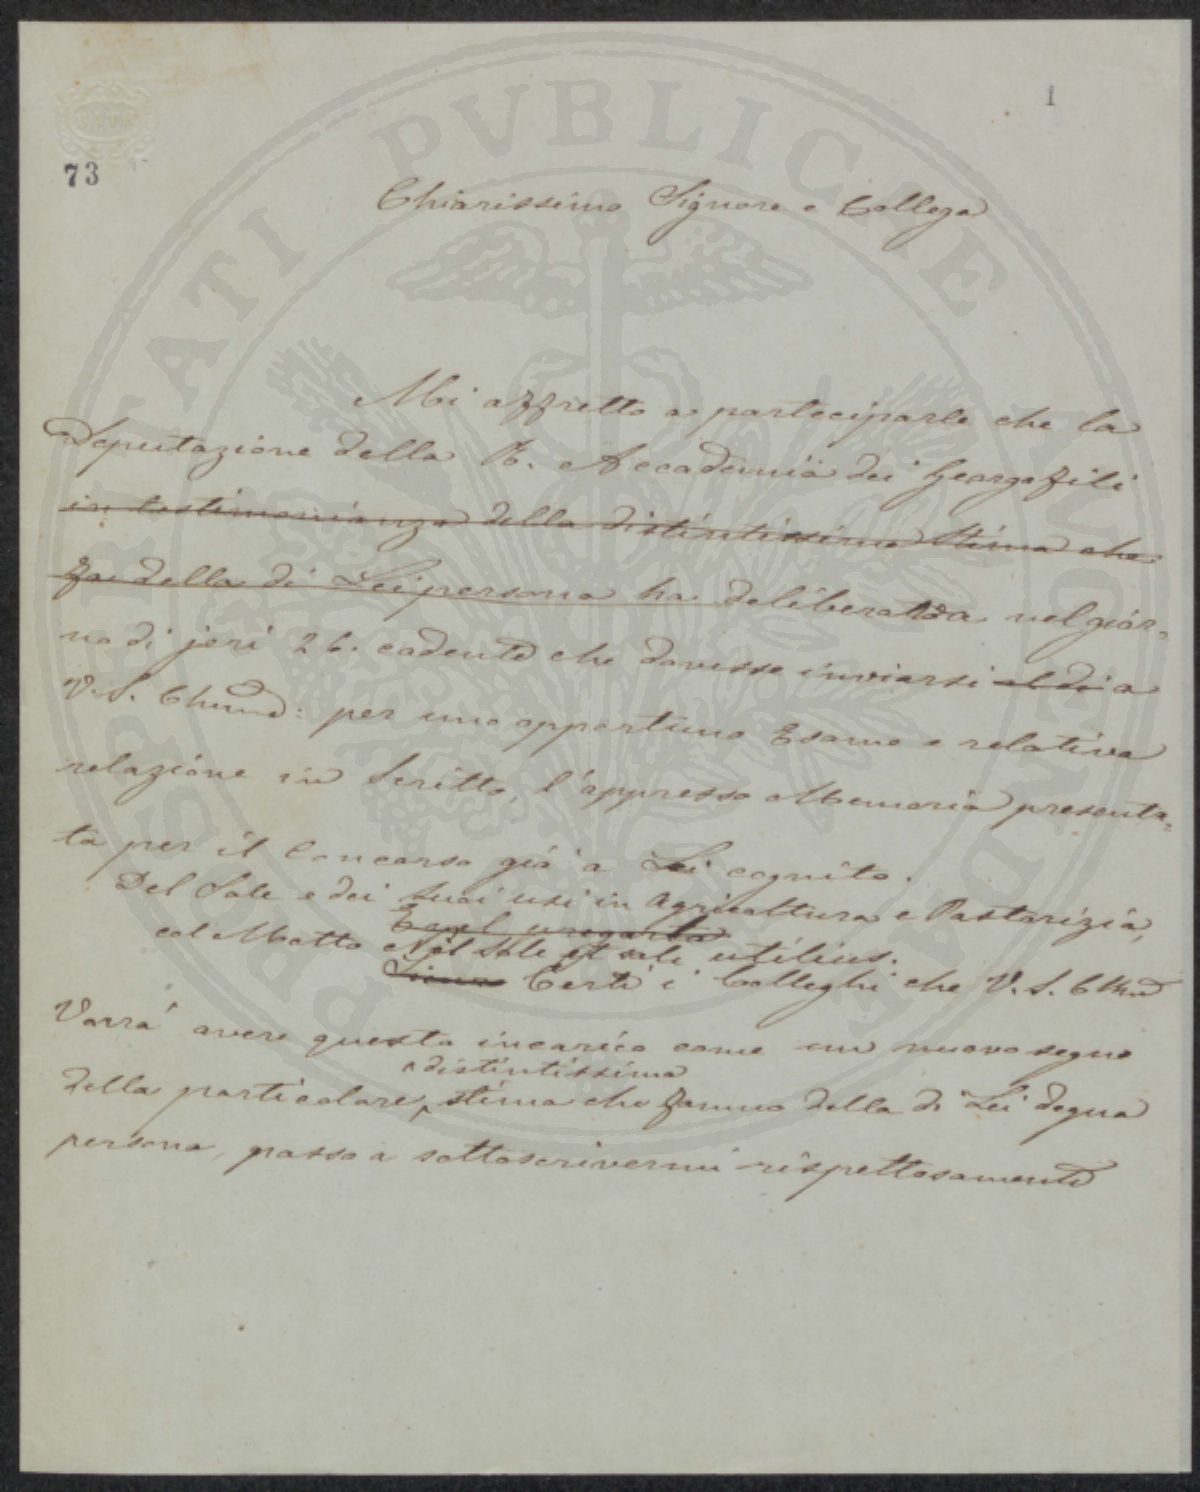 1
73
Chiarissimo Signore e Collega
Mi affretto a parteciparle che la
Deputazione della R. Accademia dei Georgofili
in testimonianza della distintissima stima che
fa della di Lei persona ha deliberato nel gior-
no di jeri 26. cadente che dovesse inviarsi a
V. S. Chma: per uno opportuno Esame e relativa
relazione in scritto, l'appresso Memoria presenta-
ta per il Concorso già a Lei cognito.
Del Sale e dei suoi usi in Agricoltura e Pastorizia,
col Motto Nil Sole et sale utilius.
Certi i Colleghi che V. S. Chma
Vorrà avere questo incarico come un nuovo segno
distintissima
della particolare, stima che fanno della di Lei degna
persona, passo a sottoscrivermi rispettosamente
PROSPERITATI PVBLICAE AVGENDAE